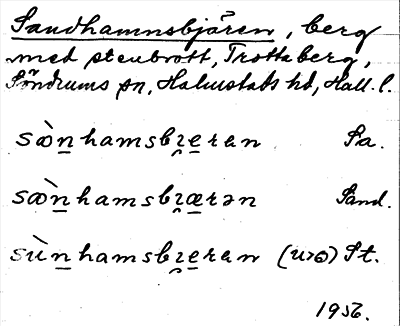 Sandhamnsbjären, berg
med stenbrott, Trottaberg,
Söndrums sn, Halmstads hd, Hall. l.
sɔ̀nhamsbɪ̯eran Sa.
sæ̀nhamsbɪ̯ærən Sand.
sùnhamsbɪ̯eran St.
1956.